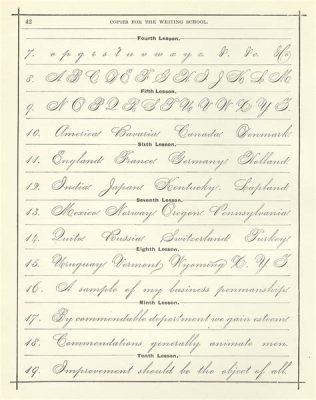 42 COPIES FOR THE WRITING SCHOOL.
Fourth Lesson.
7. o p q r s t u v w x y z &. &c.
8. A B C D E F G H I J K L M
Fifth Lesson.
9. N O P Q R S T U V W X Y Z.
10. America Bavaria Canada Denmark
Sixth Lesson.
11. England France Germany Holland
12. India Japan Kentucky. Lapland
Seventh Lesson.
13. Mexico Norway Oregon Pennsylvania
14. Quito Russia Switzerland Turkey
Eighth Lesson.
15. Uruguay Vermont Wyoming X. Y Z.
16. A sample of my business penmanship
Ninth Lesson.
17. By commendable deportment we gain esteem
18. Commendations generally animate men.
Tenth Lesson.
19. Improvement should be the object of all.